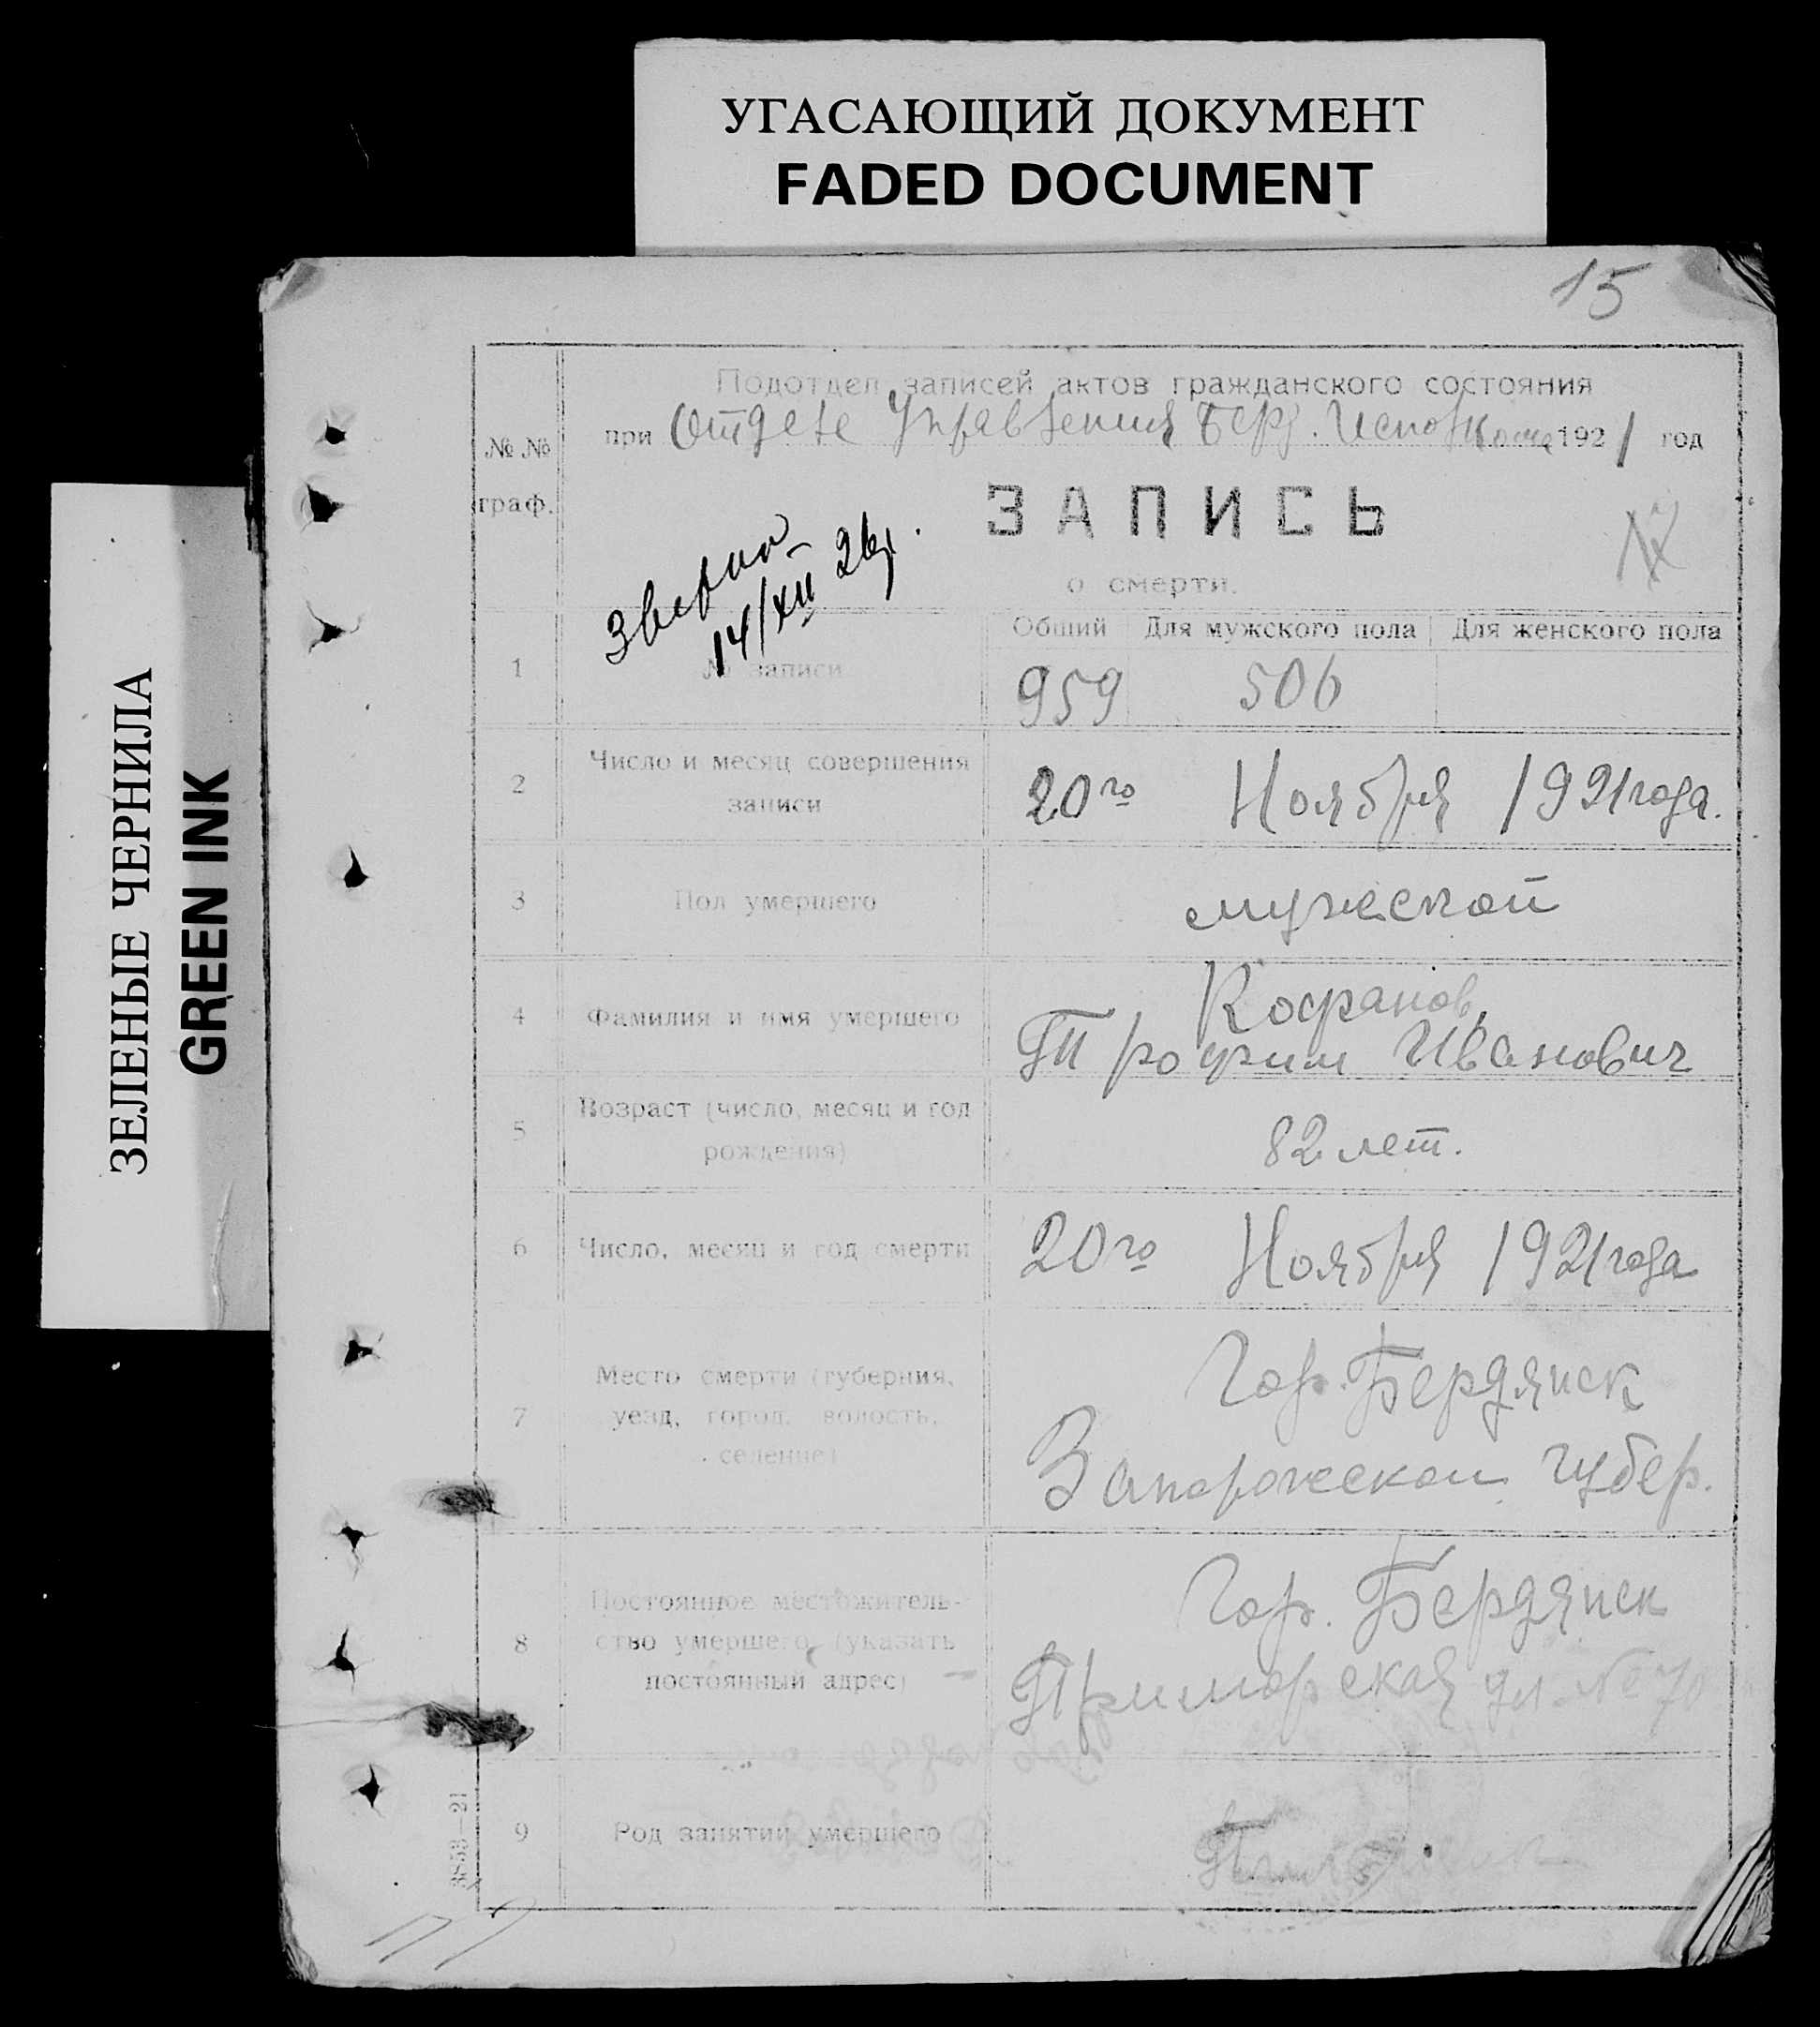 УГАСАЮЩИЙ ДОКУМЕНТ
FADED DOCUMENT
ЗЕЛЕНЫЕ ЧЕРНИЛА
GREEN INK
15
Подотдел записей актов гражданского состояния
при Отделе Управления Берд. Исполкома 1921 год
№№
граф.
ЗАПИСЬ
о смерти.
Зверно
14/XII 26р.
Общий Для мужского пола Для женского пола
1 № записи 959 506
2 Число и месяц совершения
записи
20го Ноября 1921 года.
3 Пол умершего мужеской
4 Фамилия и имя умершего
Кофанов
Трофим Иванович
5 Возраст (число, месяц и год
рождения)
82 лет.
6 Число, месяц и год смерти 20го Ноября 1921 года
7 Место смерти (губерния,
уезд, город, волость,
селение)
Гор. Бердянск
Запорожской губер.
8 Постоянное местожитель-
ство умершего (указать
постоянный адрес)
Гор. Бердянск
Приморская ул. № 70
9 Род занятий умершего
3853—21